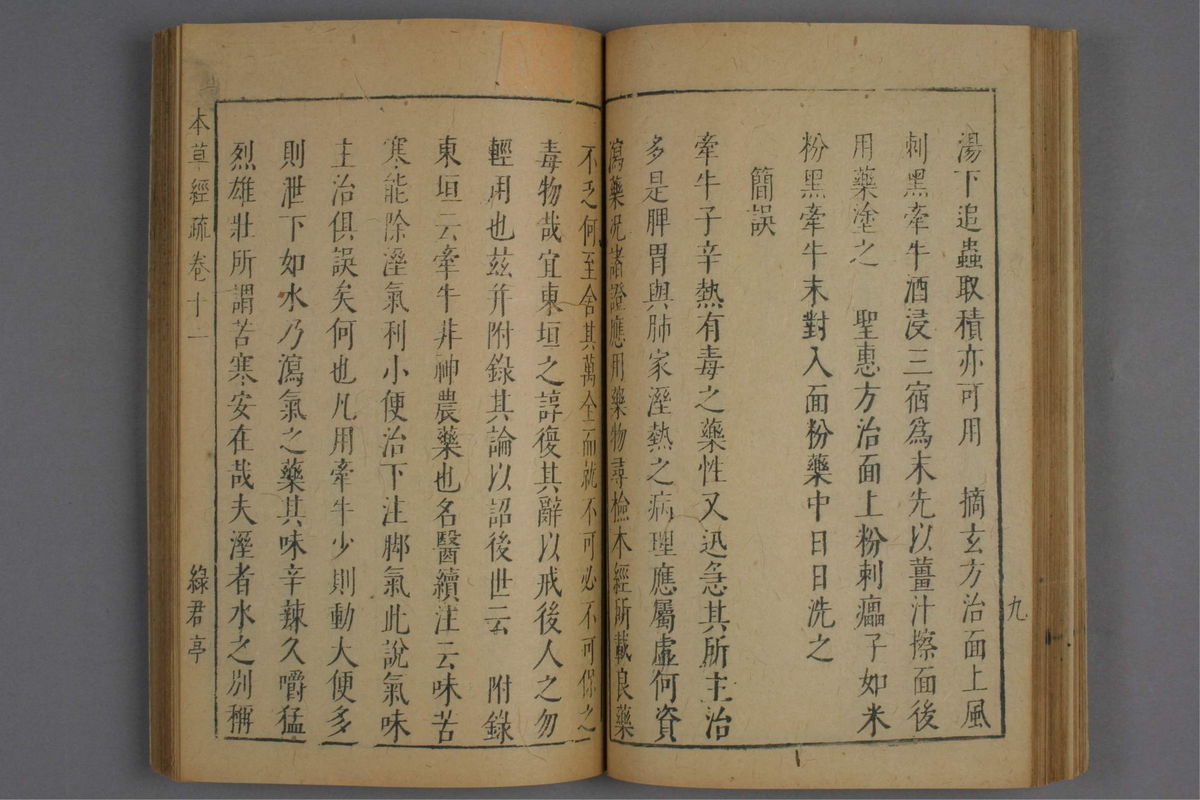 九
湯下追蟲取積亦可用　摘玄方治面上風
刺黑牽牛酒浸三宿爲末先以薑汁擦面後
用藥塗之　聖惠方治面上粉刺㿔子如米
粉黑牽牛末對入面粉藥中日日洗之
簡誤
牽牛子辛熱有毒之藥性又迅急其所主治
多是脾胃與肺家溼熱之病理應屬虛何資
瀉藥况諸證應用藥物尋檢本經所載良藥
不乏何至舍其萬全而就不可必不可保之
毒物哉宜東垣之諄復其辭以戒後人之勿
輕用也茲并附錄其論以詔後世云　附錄
東垣云牽牛非神農藥也名醫續注云味苦
寒能除溼氣利小便治下注脚氣此說氣味
主治俱誤矣何也凡用牽牛少則動大便多
則泄下如水乃瀉氣之藥其味辛辣久嚼猛
烈雄壯所謂苦寒安在哉夫溼者水之別稱
本草經疏卷十一
綠君亭